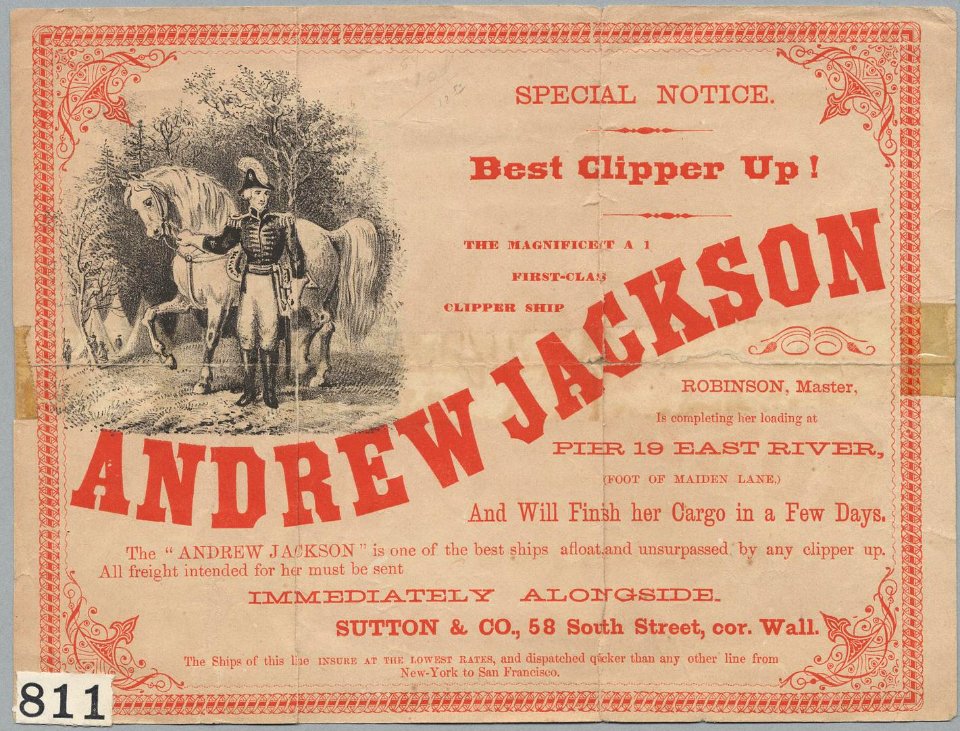 SPECIAL NOTICE.
Best Clipper Up!
THE MAGNIFICE(T A 1
FIRST-CLAS
CLIPPER SHIP
ANDREW JACKSON
ROBINSON, Master,
Is completing her loading at
PIER 19 EAST RIVER,
(FOOT OF MAIDEN LANE,)
And Will Finsh her Cargo in a Few Days.
The "ANDREW JACKSON" is one of the best ships afloat,and unsurpassed by any clipper up.
All freight intended for her must be sent
IMMEDIATELY ALONGSIDE.
SUTTON & CO., 58 South Street, cor. Wall.
The Ships of this line INSURE AT THE LOWEST RATES, and dispatched qicker than any other line from
New-York to San Francisco.
811